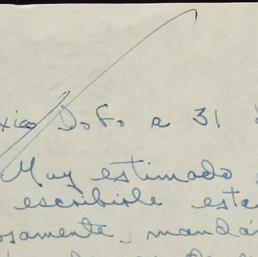 xico D.F. a 31
Muy estimado
escribirle esta
osamente, mandá